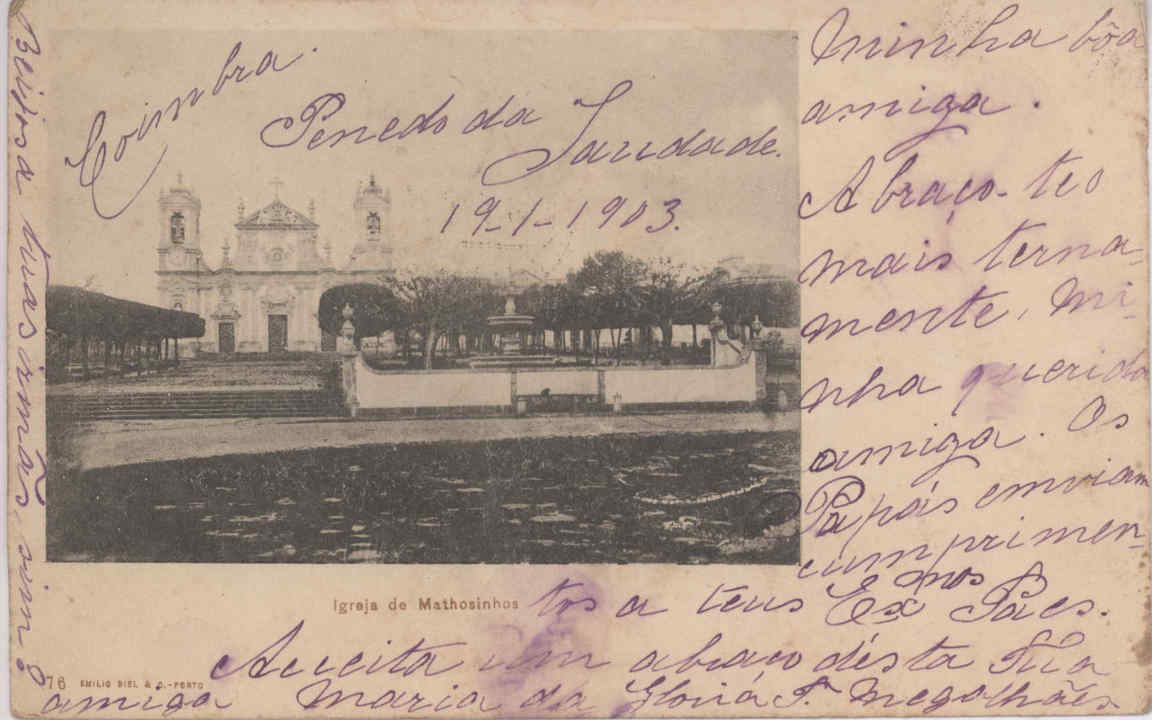 Coimbra.
Penedo da
Saudade.
19-1-1903.
Minha bôa
amiga.
Abraço-teo
mais terna-
mente, mi-
nha querida
amiga. Os
Papás enviam
cumprimen-
tos a teus Exmos Paes.
Acceita um abraço désta Tua
amiga Maria da Gloria F. Megalhães
Beijos a tuas irmãs, sim?
Igreja de Mathosinhos
76 EMILIO BIEL & C.-PORTO